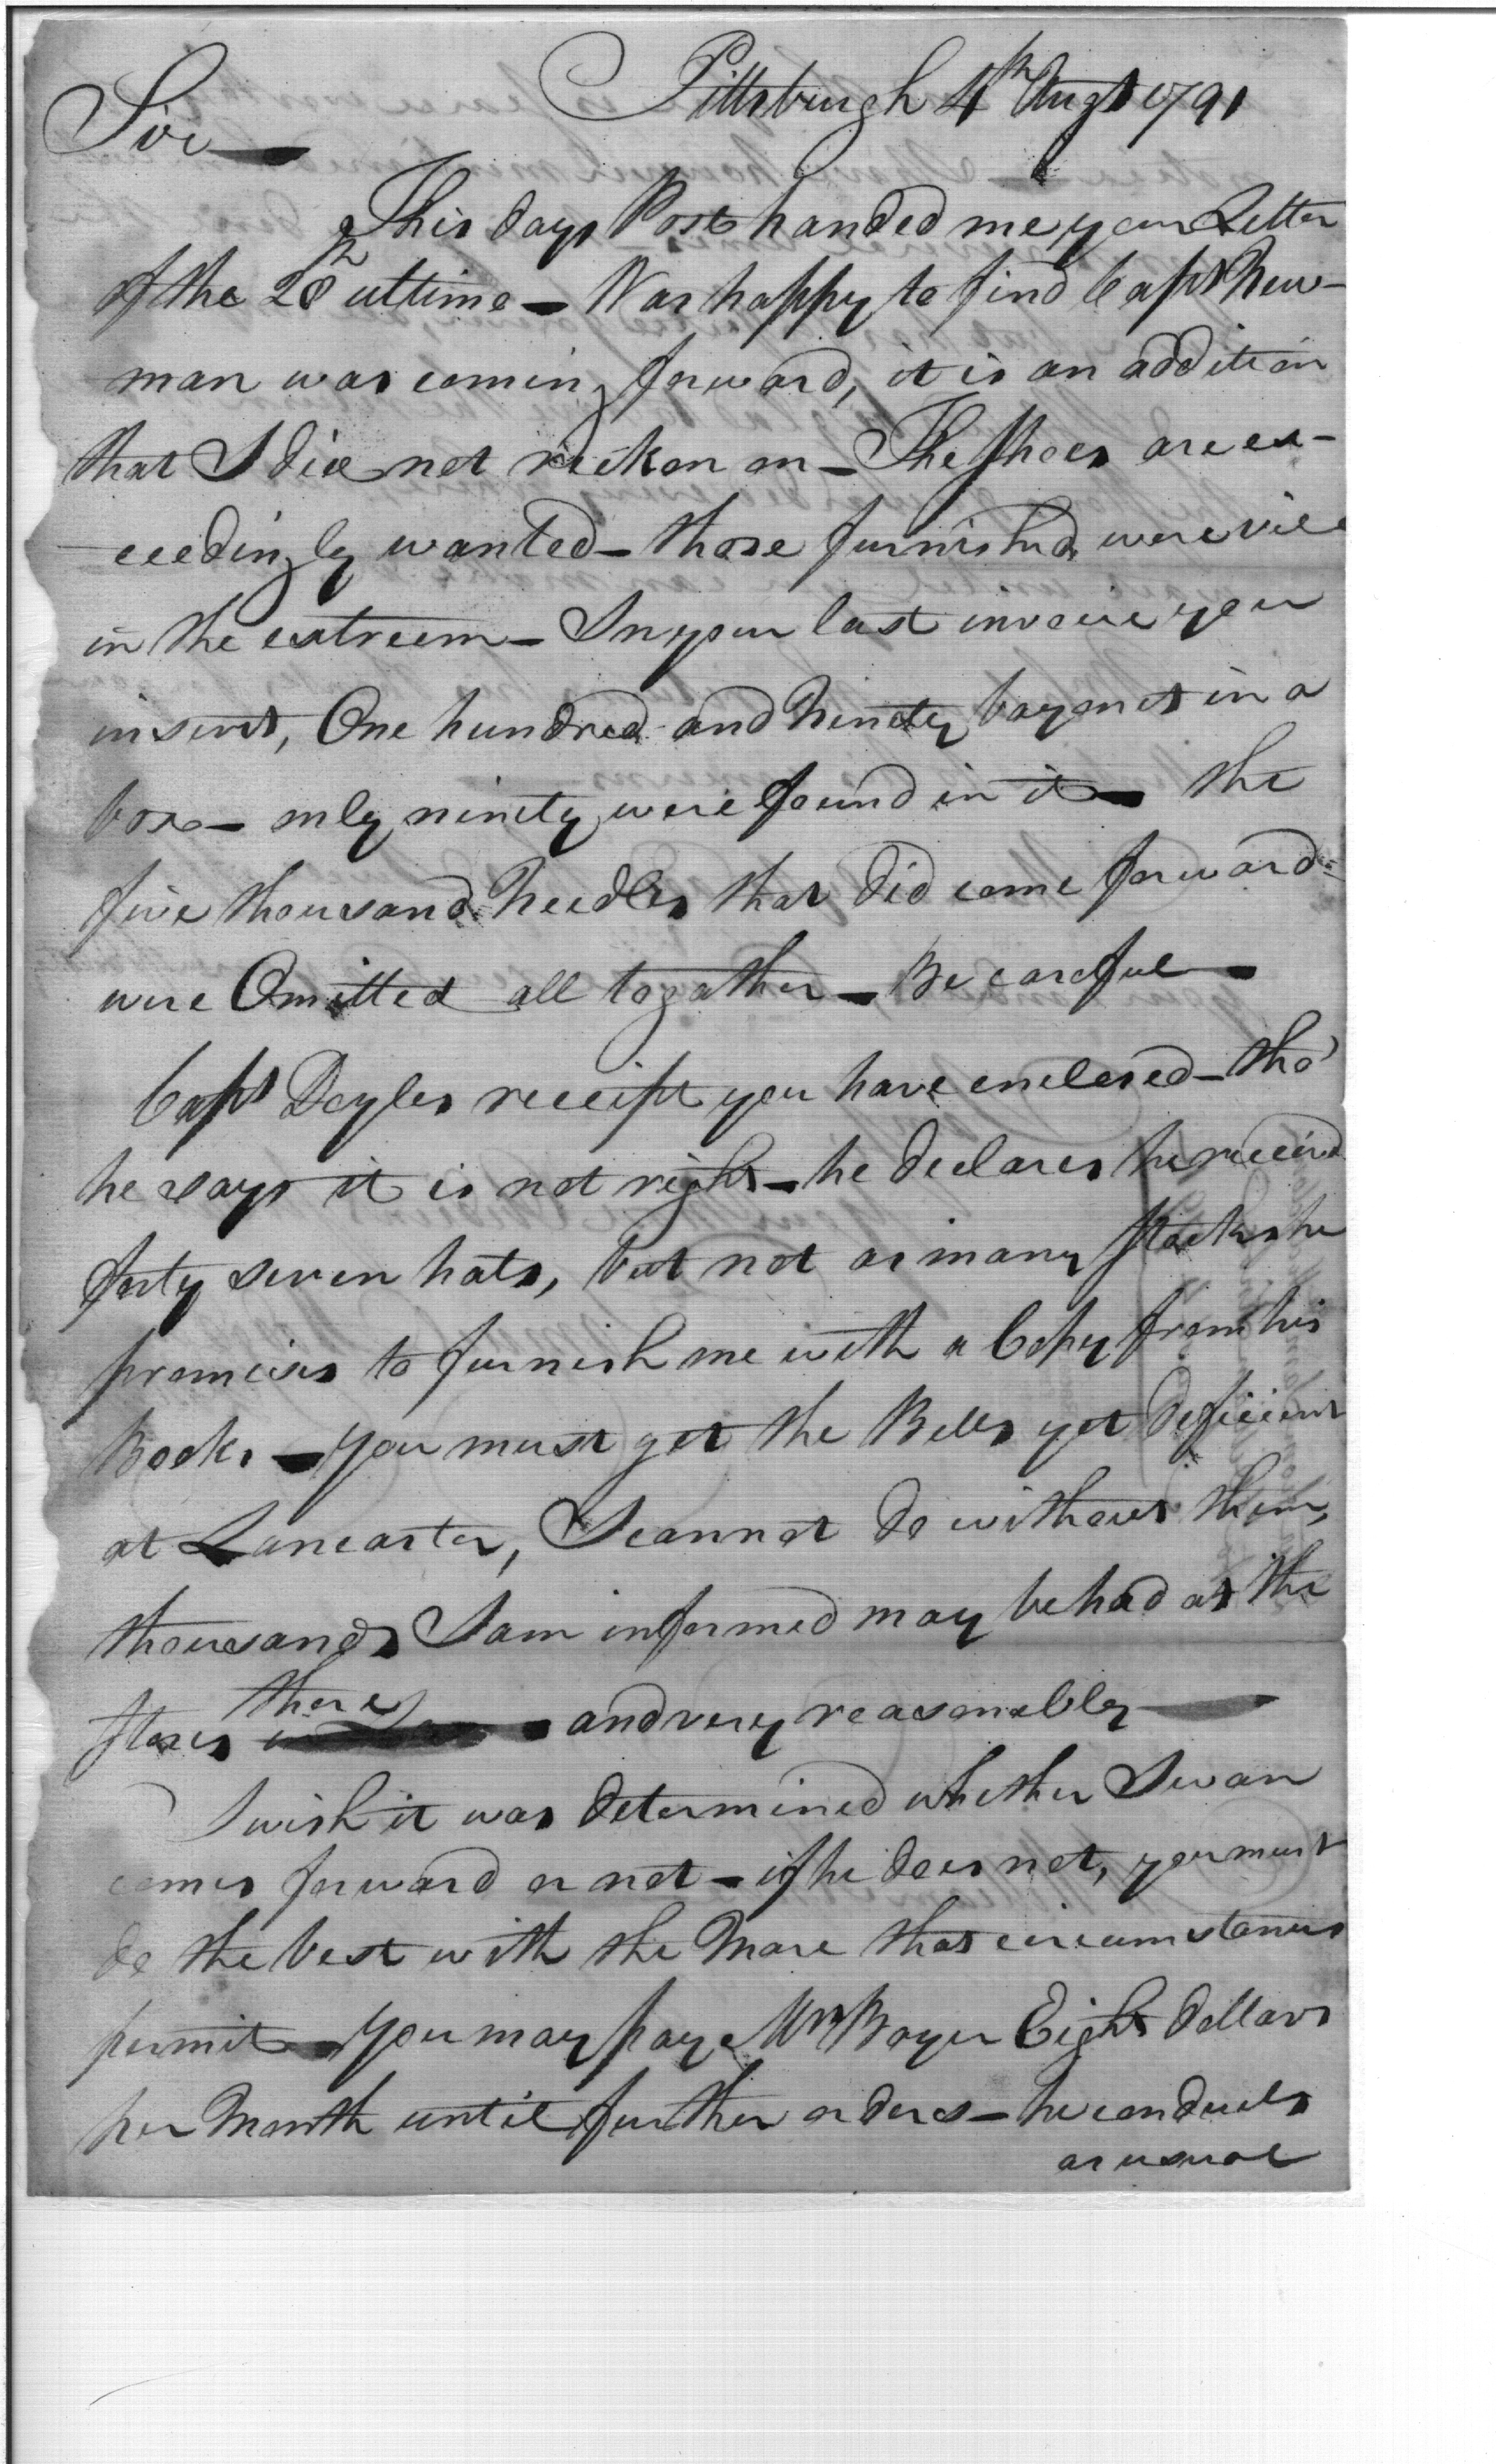 Pittsburgh 4th Augt 1791
Sir
This days Post handed me your Letter
of the 28th ultimo - Was happy to find Capt New-
man was coming forward, it is an addition
that I did not reckon on - The shoes are ex-
ceedingly wanted - those furnished were vile
in the extreem - In your last invoice you
insert, One hundred and Ninety bayonets in a
box - only ninety were found in it - the
five thousand Needles that did come forward
were Omitted all togather - Be careful -
Capt Doyles receipt you have enclosed - tho'
he says it is not right - he declares he received
forty seven hats, but not as many stocks he
promises to furnish me with a Copy from his
Books - you must get the Bells yet deficient
at Lancaster, I cannot do without them,
thousands I am informed may be had at the
stores there and very reasonably
I wish it was determined whether Swan
comes forward or not - if he does not, you must
do the best with the Mare that circumstances
permit - you may pay Mr Boyer Eight dollars
per Month until further orders - he conducts
as usual